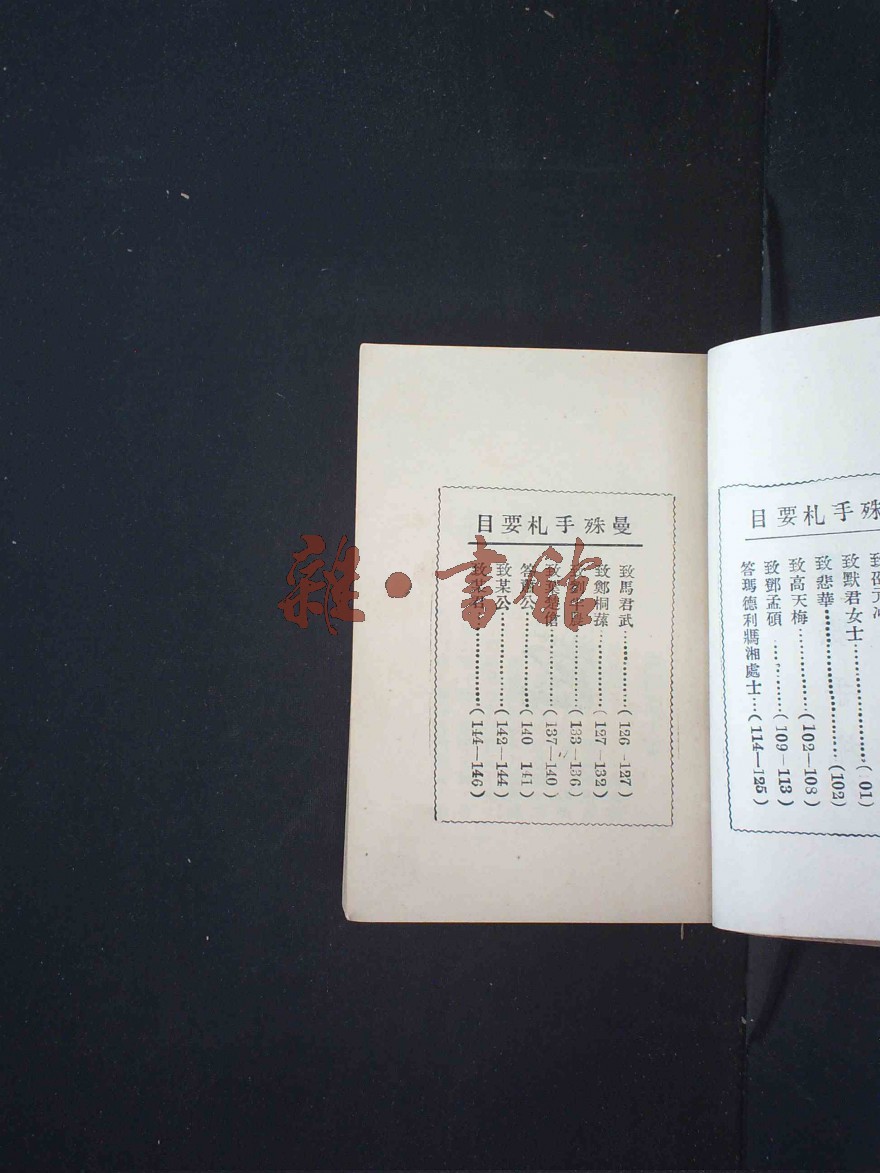 殊手札要目
致邵元冲 (101)
致默君女士…………(101)
致悲華…………(102)
致高天梅…………(102—108)
致鄧孟碩…………(109—113)
答瑪德利馮湘處士…(114—125)
曼殊手札要目
致馬君武…………(126-127)
致鄭桐蓀…………(127—132)
致劉半農…………(133—136)
致葉楚傖…………(137—140)
答蕭公…………(140 141)
致某公…………(142—144)
致某君…………(144—146)
雜·書館